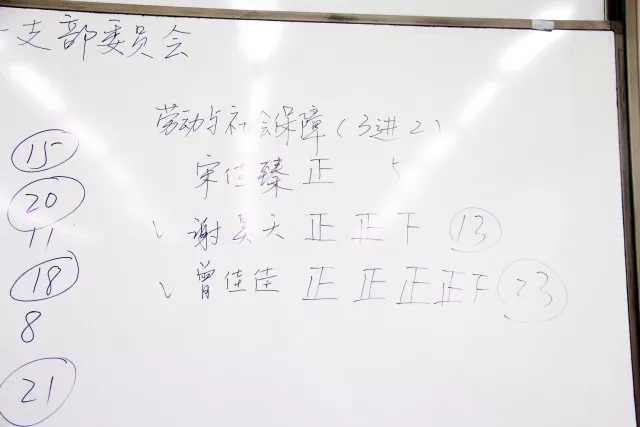 支部委员会
劳动与社会保障(3进2)
15
宋佳臻 正 5
20
11
谢昊天 正 正 下 13
18
曾佳佳 正 正 正 正 下 23
8
21